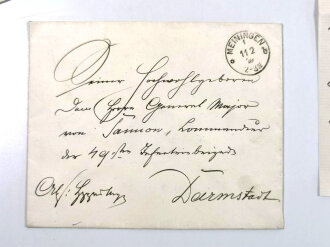 MEININGEN
11 2
Seiner Hochwohlgeboren
dem Herrn General Major
von Sannow, Kommandeur
der 49sten Infanteriebrigade
Darmstadt